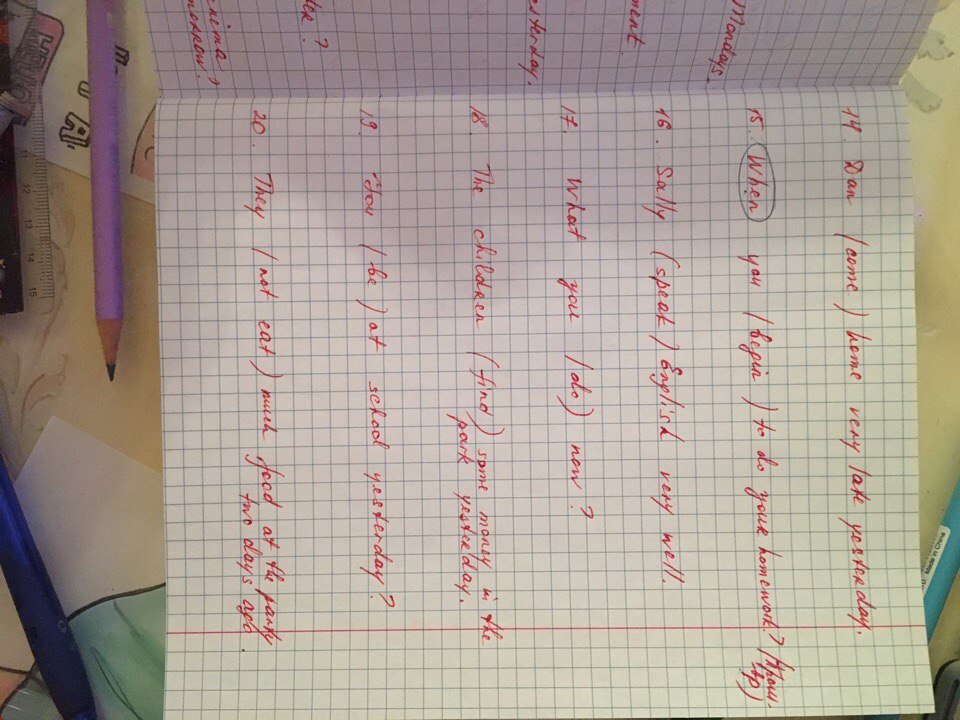 Mondays.
ment
esterday.
morrow.
14. Dan (come) home very late yesterday.
15. When you (begin) to do your homework? (прош.
вр)
16. Sally (speak) English very well.
17. What you (do) now?
18. The children (find) some money in the
park yesterday.
19. You (be) at school yesterday?
20. They (not eat) much food at the party
two days ago.
12 13 14 15
Made in China